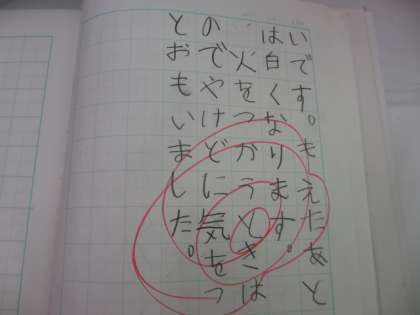 いです。もえたあと
は白くなります。
火をつかうときは
のでやけどに気をつ
とおもいました。